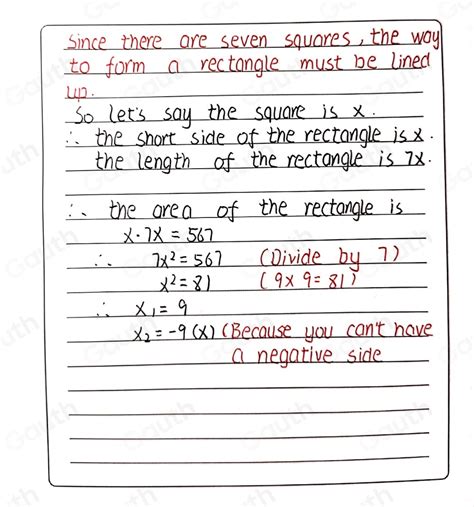 Since there are seven squares, the way
to form a rectangle must be lined
up.
So let's say the square is x.
∴ the short side of the rectangle is x.
the length of the rectangle is 7x.
∴ the area of the rectangle is
x·7x = 567
∴ 7x² = 567 (Divide by 7)
x² = 81 (9x9=81)
∴ x₁ = 9
x₂ = -9 (x) (Because you can't have
a negative side